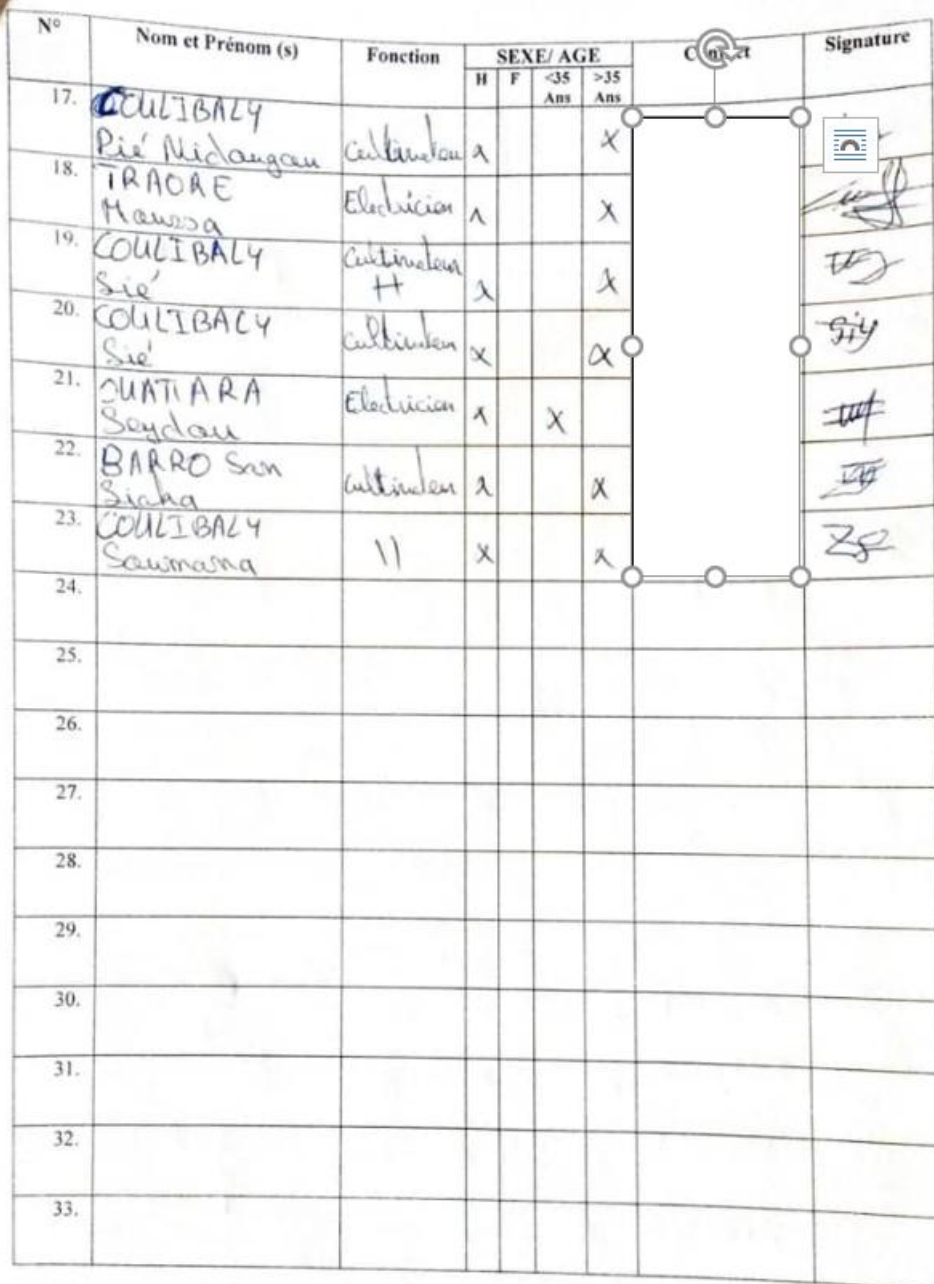 N° Nom et Prénom (s) Fonction SEXE/ AGE Signature
H F <35 Ans >35 Ans
17. COULIBALY
Pié Cultivateur x x
18. TRAORE
Moussa Electricien x x
19. COULIBALY
Sié Cultivateur H x x
20. COULIBALY
Sié Cultivateur x x Siy
21. OUATTARA
Seydou Electricien x x
22. BARRO San
Siaka Cultivateur x x
23. COULIBALY
Soumana " x x
24.
25.
26.
27.
28.
29.
30.
31.
32.
33.